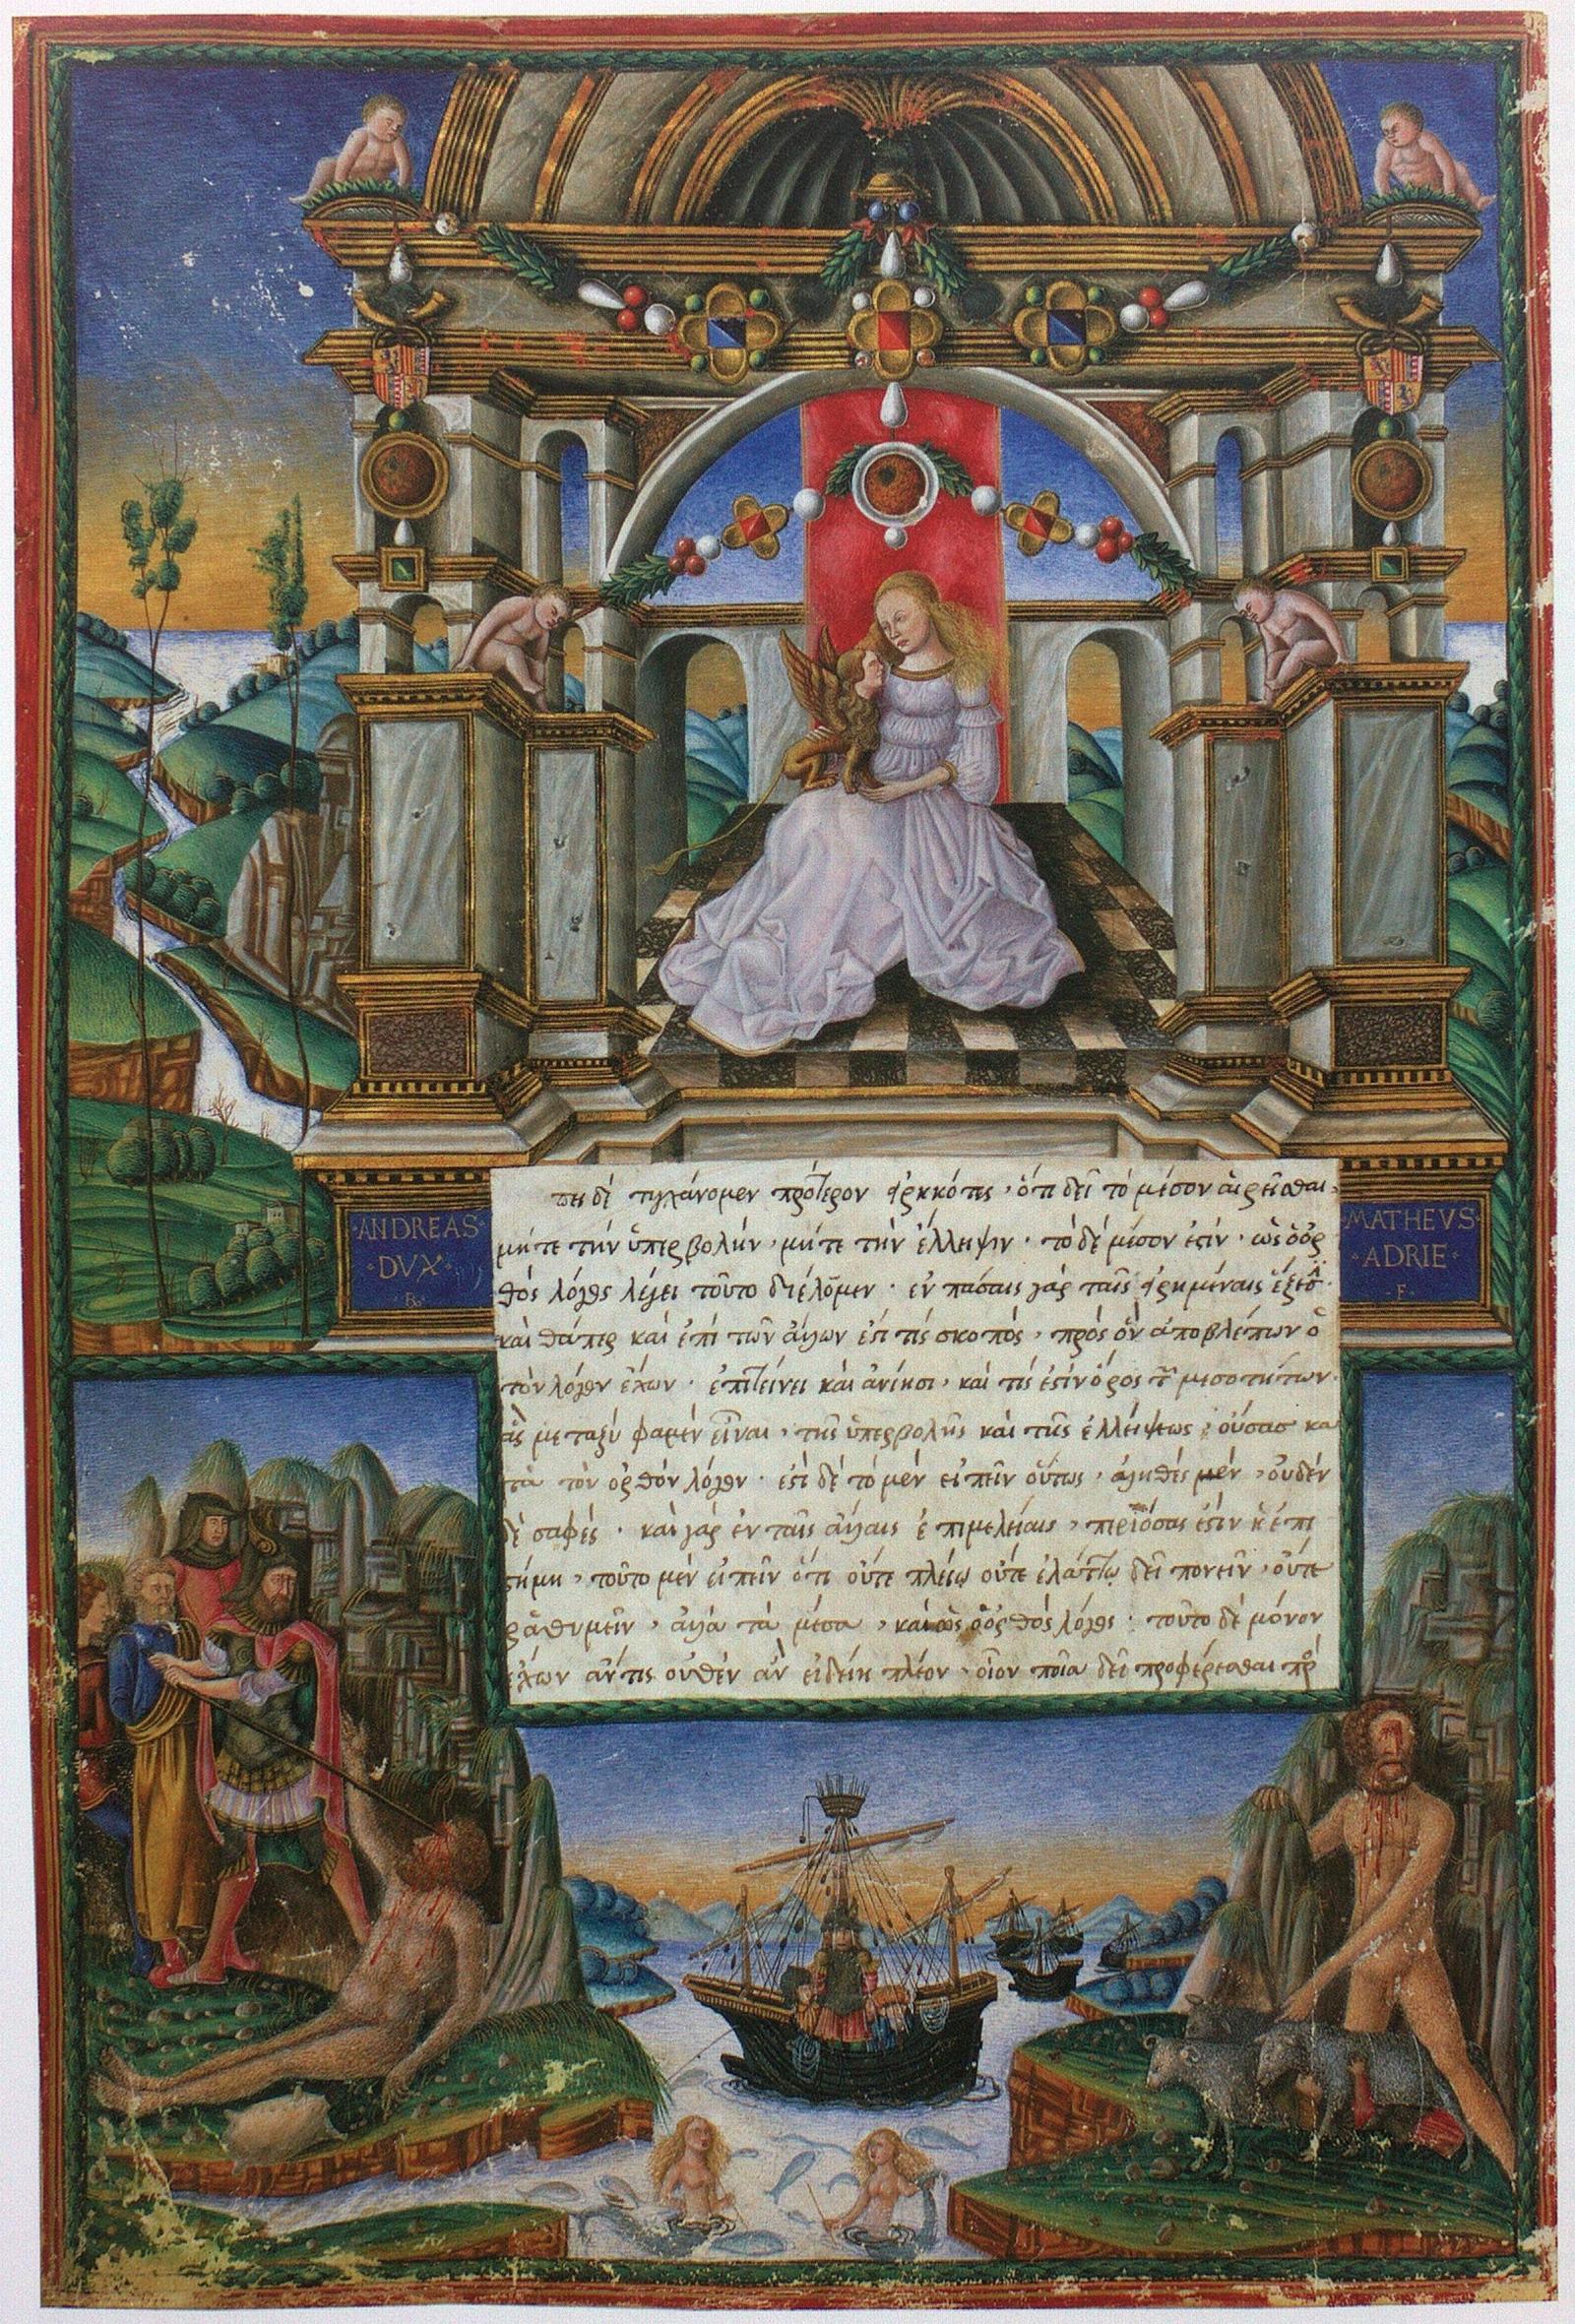 πει δὲ τυγχάνομεν πρότερον εἰρηκότες, ὅτι δεῖ τὸ μέσον αἱρεῖσθαι,
μήτε τὴν ὑπερβολὴν, μήτε τὴν ἔλλειψιν · τὸ δὲ μέσον ἐστὶν · ὡς ὁ ὀρ
θὸς λόγος λέγει τοῦτο διέλωμεν · ἐν πάσαις γὰρ ταῖς εἰρημέναις ἕξεσι ·
καθάπερ καὶ ἐπὶ τῶν ἄλλων ἐστί τις σκοπὸς, πρὸς ὃν ἀποβλέπων ὁ
τὸν λόγον ἔχων · ἐπιτείνει καὶ ἀνίησι, καὶ τίς ἐστιν ὅρος τῶν μεσοτήτων ·
ἃς μεταξύ φαμεν εἶναι, τῆς ὑπερβολῆς καὶ τῆς ἐλλείψεως, οὔσας κα
τὰ τὸν ὀρθὸν λόγον · ἐστὶ δὲ τὸ μὲν εἰπεῖν οὕτως, ἀληθὲς μὲν, οὐδὲν
δὲ σαφές · καὶ γὰρ ἐν ταῖς ἄλλαις ἐπιμελείαις, περὶ ὅσας ἐστὶν ἡ ἐπι
στήμη, τοῦτο μὲν εἰπεῖν ὅτι οὔτε πλείω οὔτε ἐλάττω δεῖ πονεῖν, οὔτε
ῥᾳθυμεῖν, ἀλλὰ τὰ μέσα, καὶ ὡς ὁ ὀρθὸς λόγος · τοῦτο δὲ μόνον
ἔχων ἄν τις οὐθὲν ἂν εἰδείη πλέον, οἷον ποῖα δεῖ προφέρεσθαι πρὸ
·ANDREAS·
·DVX·
MATHEVS·
·ADRIE·
·F·